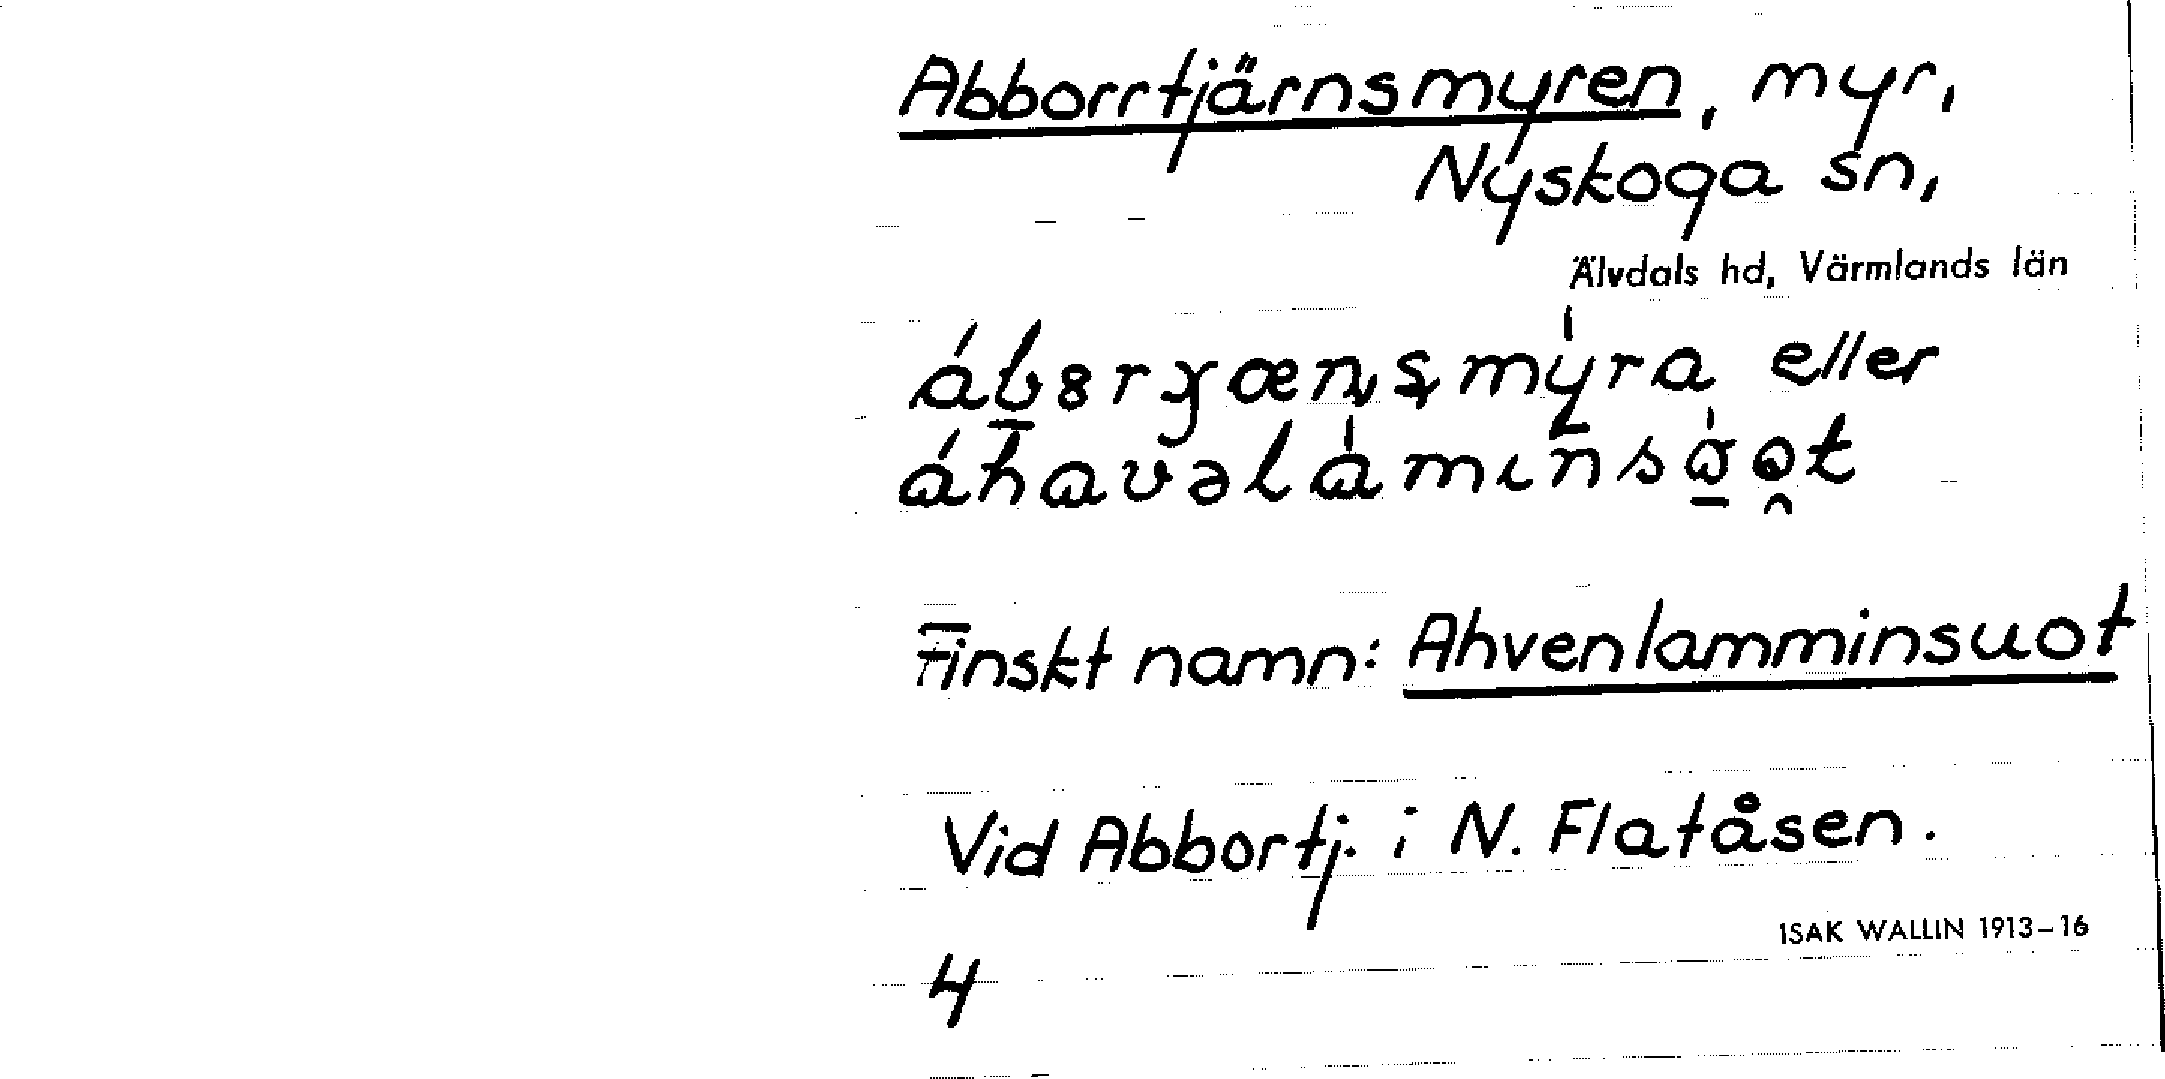 Abborrtjärnsmyren, myr,
Nyskoga sn,
Älvdals hd, Värmlands län
eller
Finskt namn: Ahvenlamminsuot
Vid Abbortj. i N. Flatåsen.
ISAK WALLIN 1913-16
4